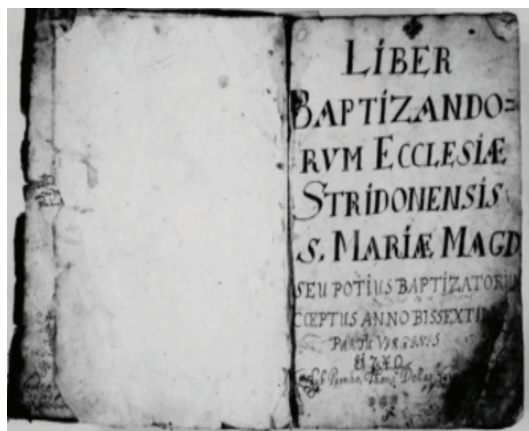 LIBER
BAPTIZANDO=
RVM ECCLESIÆ
STRIDONENSIS
S. MARIÆ MAGD
SEU POTIUS BAPTIZATORU
CŒPTUS ANNO BISSEXTI